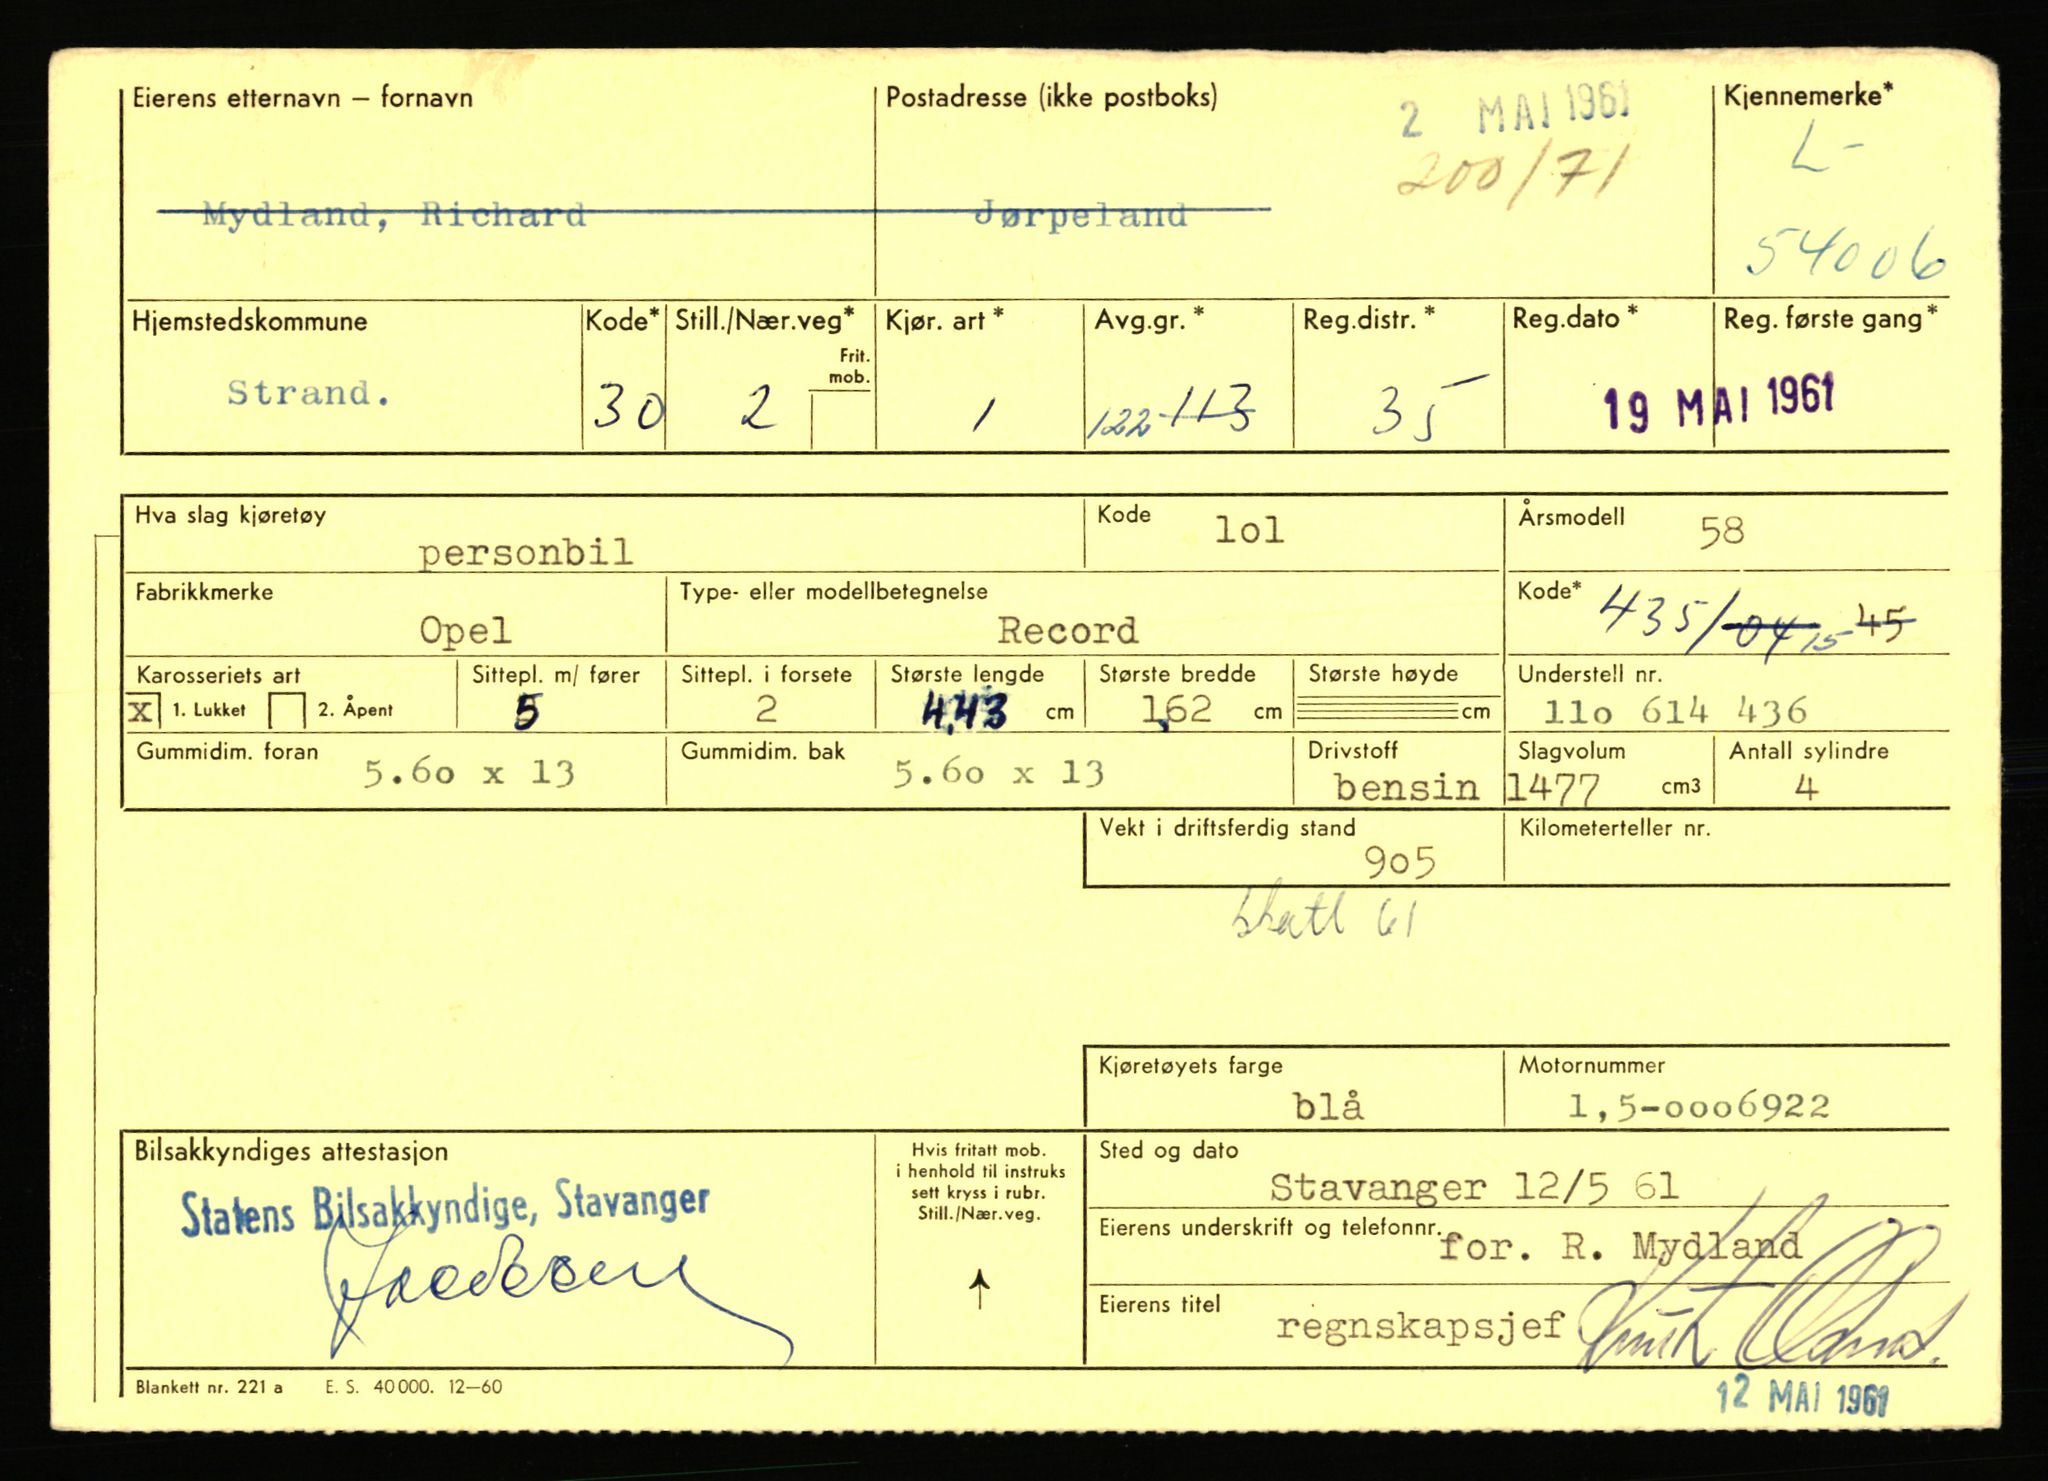 Eierens etternavn – fornavn
Postadresse (ikke postboks)
2 MAI 1961
Kjennemerke*
200/71
L-
Mydland, Richard
Jørpeland
54006
Hjemstedskommune
Kode*
Still./Nær.veg*
Kjør. art*
Avg.gr.*
Reg.distr.*
Reg.dato*
Reg. første gang*
Frit.
mob.
Strand.
30
2
1
122 113
35
19 MAI 1961
Hva slag kjøretøy
personbil
Kode
lol
Årsmodell
58
Fabrikkmerke
Opel
Type- eller modellbetegnelse
Record
Kode*
435/04 15 45
Karosseriets art
X 1. Lukket 2. Åpent
Sittepl. m/ fører
5
Sittepl. i forsete
2
Største lengde
4,43 cm
Største bredde
1,62 cm
Største høyde
cm
Understell nr.
llo 614 436
Gummidim. foran
5.6o x 13
Gummidim. bak
5.6o x 13
Drivstoff
bensin
Slagvolum
1477 cm3
Antall sylindre
4
Vekt i driftsferdig stand
9o5
Kilometerteller nr.
skatt 61
Kjøretøyets farge
blå
Motornummer
1,5-ooo6922
Bilsakkyndiges attestasjon
Statens Bilsakkyndige, Stavanger
Hvis fritatt mob.
i henhold til instruks
sett kryss i rubr.
Still./Nær.veg.
Sted og dato
Stavanger 12/5 61
Eierens underskrift og telefonnr.
for. R. Mydland
Eierens titel
regnskapsjef
12 MAI 1961
Blankett nr. 221 a E. S. 40 000. 12–60